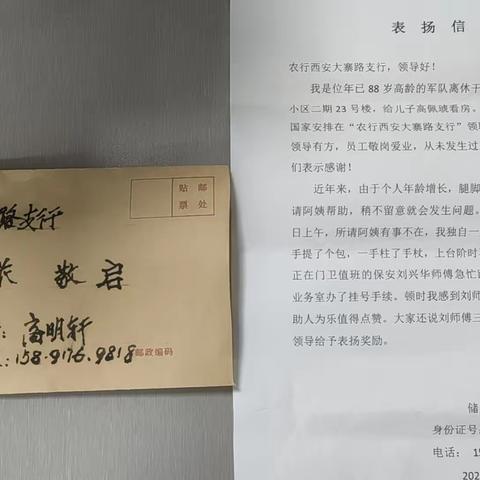 路支行
敬启
高明轩
158.9176.9818
贴邮
票处
邮政编码
表扬信
农行西安大寨路支行，领导好！
我是位年已 88 岁高龄的军队离休干
小区二期 23 号楼，给儿子高佩琥看房。
国家安排在“农行西安大寨路支行”领
领导有方，员工敬岗爱业，从未发生过
们表示感谢！
近年来，由于个人年龄增长，腿脚
请阿姨帮助，稍不留意就会发生问题。
日上午，所请阿姨有事不在，我独自一
手提了个包，一手柱了手杖，上台阶时
正在门卫值班的保安刘兴华师傅急忙
业务室办了挂号手续。顿时我感到刘师
助人为乐值得点赞。大家还说刘师傅三
领导给予表扬奖励。
储
身份证号:
电话： 15
202